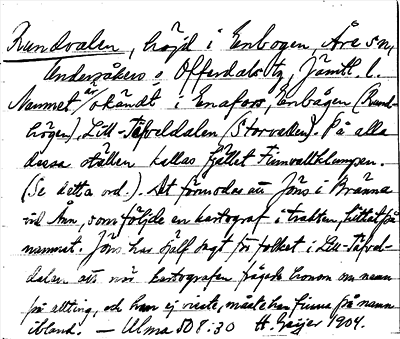 Rundvalen, höjd i Enbogen, Åre sn,
Undersåkers o Offerdals tg, Jämtl. l.
Namnet är okändt i Enafors, Enbågen (Rund-
högen), Lill-Täfveldalen, (Storvallen). På alla
dessa ställen kallas fjället Finnvallklumpen.
(Se detta ord.). Det förmodas att Jöns i Bränna
vid Ånn, som följde en kartograf i trakten, hittat på
namnet. Jöns har själf sagt för folket i Lill-Täfvel-
dalen att när kartografen frågade honom om namn
på allting, och han ej visste, måste han finna på namn
ibland. — Ulma 508:30 H. Geijer 1904.